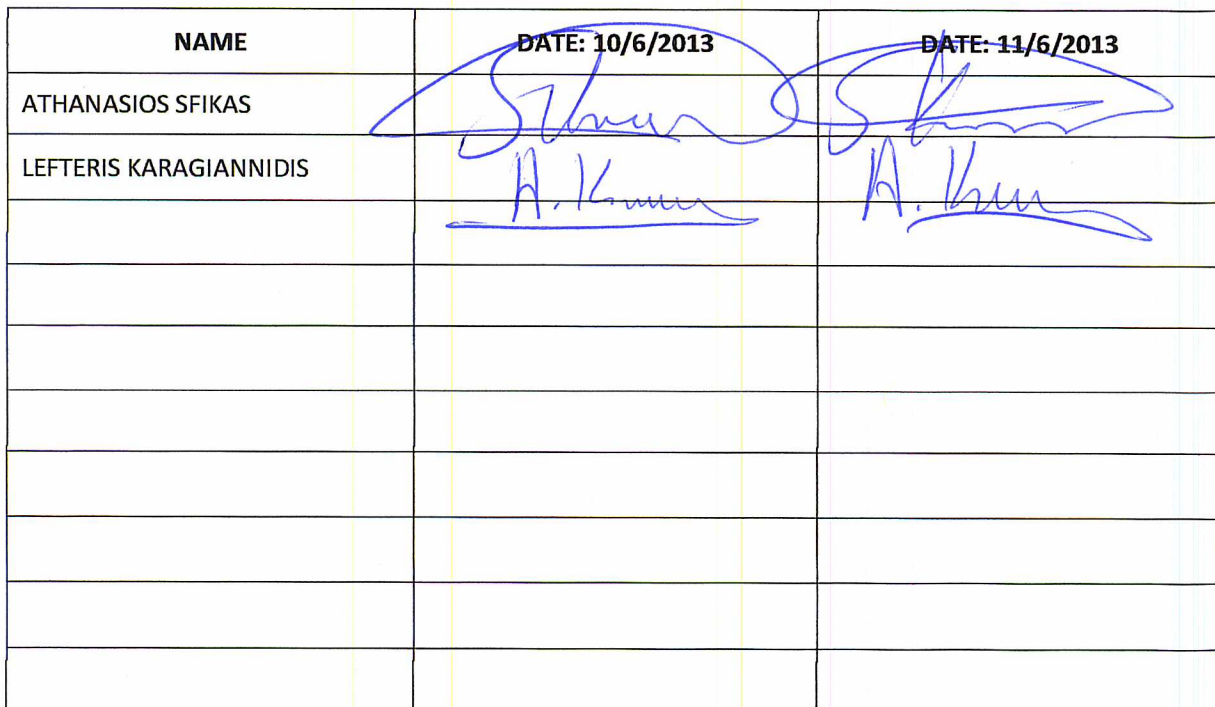 NAME DATE: 10/6/2013 DATE: 11/6/2013
ATHANASIOS SFIKAS
LEFTERIS KARAGIANNIDIS